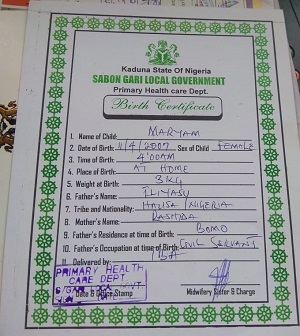 Kaduna State Of Nigeria
SABON GARI LOCAL GOVERNMENT
Primary Health care Dept.
Birth Certificate
1. Name of Child: MARYAM
2. Date of Birth: 11/4/2007 Sex of Child FEMALE
3. Time of Birth: 4:00AM
4. Place of Birth: AT HOME
5. Weight at Birth: 3KG
6. Father's Name: ILIYASU
7. Tribe and Nationality: HAUSA/NIGERIA
8. Mother's Name: RASHIDA
9. Father's Residence at time of Birth: BOMO
10. Father's Occupation at time of Birth: CIVIL SERVANT
11. Delivered by: TBA
PRIMARY HEALTH
CARE DEPT
Date & Office Stamp Midwifery Sister & Charge